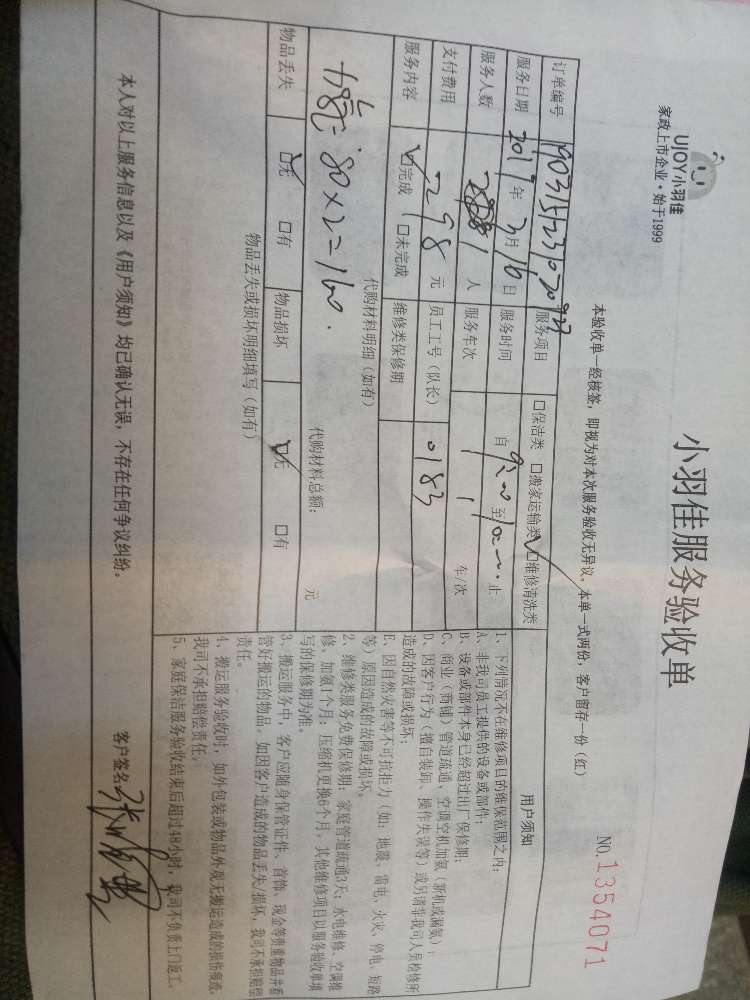 UJOY小羽佳
家政上市企业·始于1999
小羽佳服务验收单
NO.1354071
本验收单一经核签，即视为对本次服务验收无异议，本单一式两份，客户留存一份（红）
订单编号
服务项目 口保洁类 口搬家运输类 口维修清洗类
服务日期 2019年3月10日 服务时间 自9:00至10:00止
服务人数 1人 服务车次 1 车/次
支付费用 298元 员工工号（队长） 0183
服务内容 口完成 口未完成 维修类保修期
代购材料明细（如有）
80×2=160.
代购材料总额： 元
物品丢失 口无 口有 物品损坏 口无 口有
物品丢失或损坏明细填写（如有）
用户须知
1、下列情况不在维修项目的维保范围之内：
A、非我司员工提供的设备或部件；
B、设备或部件本身已经超过出厂保修期；
C、商业（商铺）管道疏通、空调空机加氨（新机或漏氨）；
D、因客户行为（擅自装卸、操作失误等）或另请非我司人员检修所
造成的故障或损坏；
E、因自然灾害等不可抗拒力（如：地震、雷电、火灾、停电、短路
等）原因造成的故障或损坏。
2、维修类服务免费保修期：家庭管道疏通3天；水电维修、空调维
修、加氨1个月；压缩机更换6个月，其他维修项目以服务验收单填
写的保修期为准。
3、搬运服务中，客户应随身保管证件、首饰、现金等贵重物品并看
管好搬运的物品，如因客户造成的物品丢失/损坏，我司不承担赔偿
责任。
4、搬运服务验收时，如外包装或物品外观无搬运造成的损伤痕迹，
我司不承担赔偿责任。
5、家庭保洁服务验收结束后超过48小时，我司不负责上门返工。
本人对以上服务信息以及《用户须知》均已确认无误，不存在任何争议纠纷。
客户签名